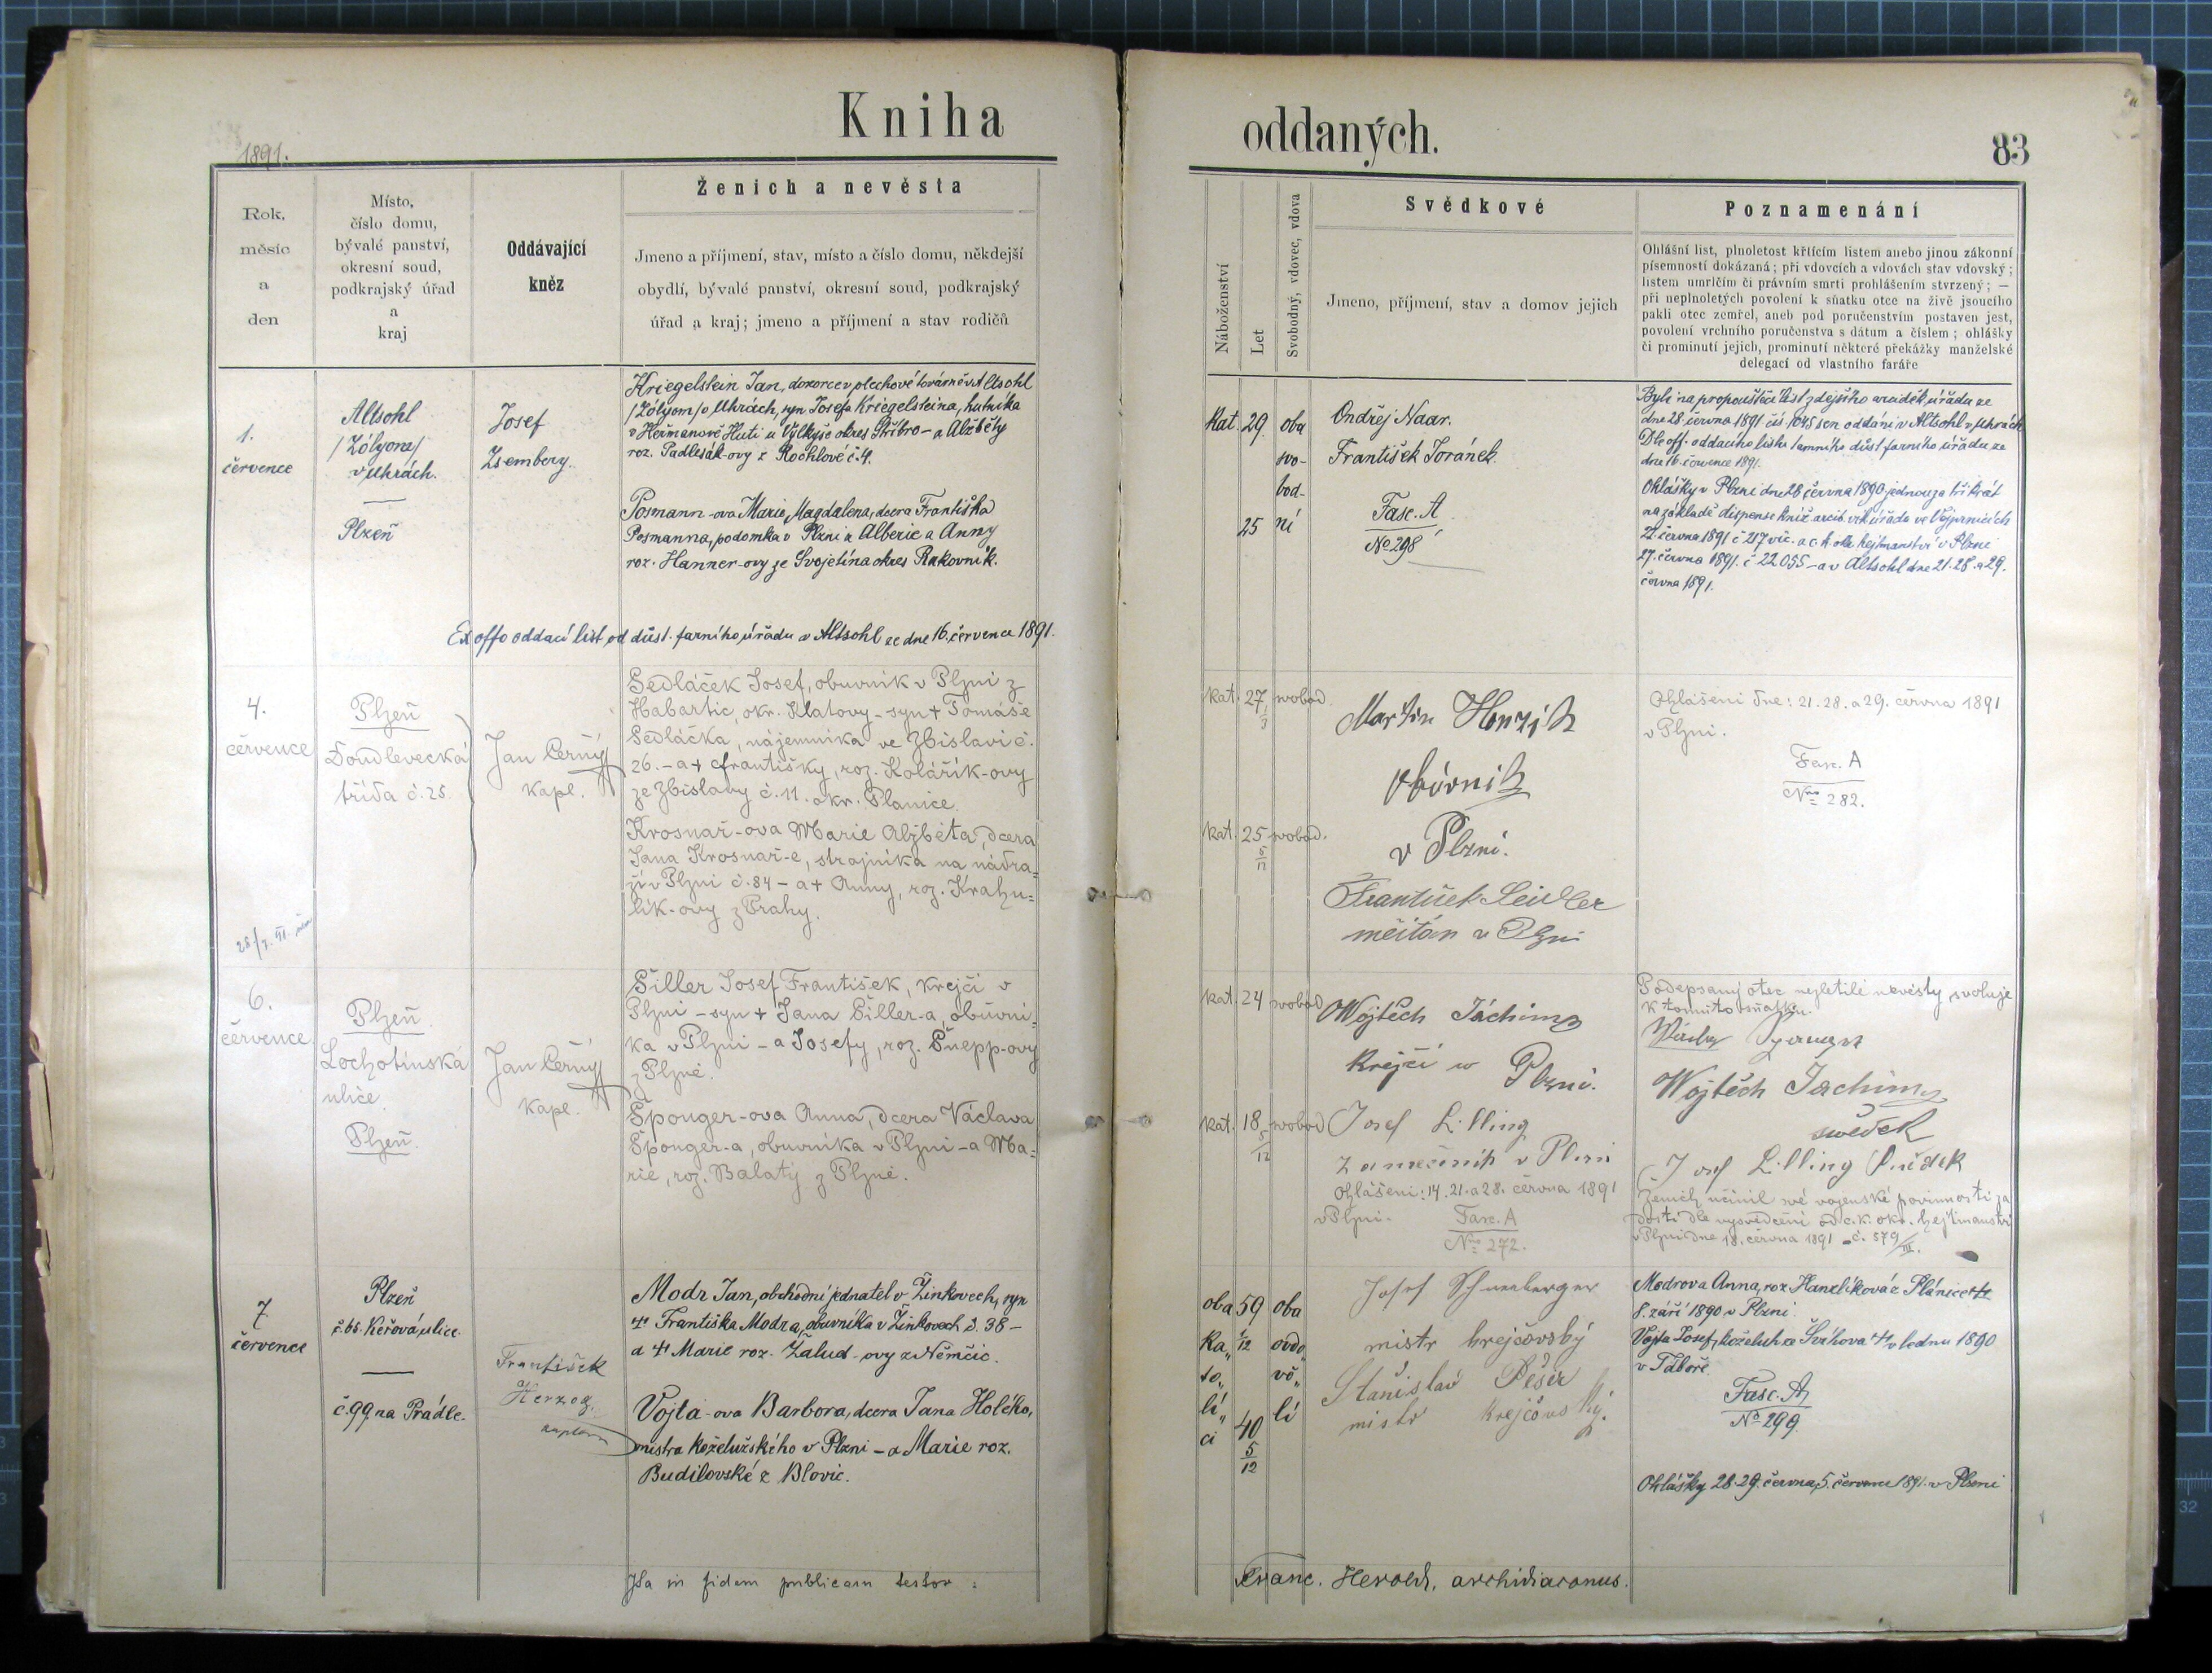 Kniha
1891.
Rok,
měsíc
a
den
Místo,
číslo domu,
bývalé panství,
okresní soud,
podkrajský úřad
a
kraj
Oddávající
kněz
Ženich a nevěsta
Jmeno a příjmení, stav, místo a číslo domu, někdejší
obydlí, bývalé panství, okresní soud, podkrajský
úřad a kraj; jmeno a příjmení a stav rodičů
1.
července
Altsohl
/Zólyom/
v Uhrách.
Plzeň
Josef
Zsembery.
Kriegelstein Jan, dozorce v plechové továrně v Altsohl
/Zólyom/ v Uhrách, syn Josefa Kriegelsteina, hutníka
v Heřmanově Huti u Vylkyše okres Stříbro – a Alžběty
roz. Padlesák-ovy z Rochlové č. 4.
Posmann-ova Marie Magdalena, dcera Františka
Posmanna, podomka v Plzni z Alberic a Anny
roz. Hanner-ovy ze Svojetína okres Rakovník.
Ex offo oddací list od důst. farního úřadu v Altsohl ze dne 16. července 1891.
4.
července
Plzeň
Doudlevecká
třída č. 25.
Jan Černý
kapl.
Sedláček Josef, obuvník v Plzni z
Habartic, okr. Klatovy – syn + Tomáše
Sedláčka, nájemníka ve Zbislavi č.
26. – a + Františky, roz. Kolářík-ovy
ze Zbislavy č. 11. okr. Planice.
Krosnař-ova Marie Alžběta, dcera
Jana Krosnař-e, strojníka na nádra=
ží v Plzni č. 84 – a + Anny, roz. Krahu=
lík-ovy z Prahy.
6.
července
Plzeň
Lochotínská
ulice.
Plzeň.
Jan Černý
kapl.
Šiller Josef František, krejčí v
Plzni – syn + Jana Šiller-a, obuvní=
ka v Plzni – a Josefy, roz. Šnepp-ovy
z Plzně.
Sponger-ova Anna, dcera Václava
Sponger-a, obuvníka v Plzni – a Ma=
rie, roz. Balatý z Plzně.
7.
července
Plzeň
č. 65. Keřová ulice.
č. 99 na Prádle.
František
Herzog.
kaplan
Modr Jan, obchodní jednatel v Žinkovech, syn
+ Františka Modra, obuvníka v Žinkovech č. 38 –
a + Marie roz. Žalud-ovy z Němčic.
Vojta-ova Barbora, dcera Jana Holčko,
mistra koželužského v Plzni – a Marie roz.
Budilovské z Blovic.
Ita in fidem publicam testor:
oddaných.
83
Náboženství
Let
Svobodný, vdovec, vdova
Svědkové
Jmeno, příjmení, stav a domov jejich
Poznamenání
Ohlášní list, plnoletost křtícím listem anebo jinou zákonní
písemností dokázaná; při vdovcích a vdovách stav vdovský;
listem umrlčím či právním smrti prohlášením stvrzený; —
při neplnoletých povolení k sňatku otce na živě jsoucího
pakli otec zemřel, aneb pod poručenstvím postaven jest,
povolení vrchního poručenstva s dátum a číslem; ohlášky
či prominutí jejich, prominutí některé překážky manželské
delegací od vlastního faráře
kat. 29. oba
svo-
bod-
25 ní
Ondřej Naar.
František Joránek.
Fasc. A
No 298
Byli na propouštěcí list zdejšího arciděk. úřadu ze
dne 28. června 1891 čís. 1045 sen oddáni v Altsohl v Uhrách
Dle off. oddacího listu tamního důst. farního úřadu ze
dne 16. července 1891.
Ohlášky v Plzni dne 28. června 1890 jednou za třikrát
na základě dispense kníž. arcib. vik. úřadu ve Vejprnicích
22. června 1891 č. 217 vic. a c. k. okr. hejtmanství v Plzni
27. června 1891. č 22055 – a v Altsohl dne 21. 28. a 29.
června 1891.
kat. 27 svobod.
kat. 25 5/12 svobod.
Martin Honzik
obůvnik
v Plzni.
František Seidler
měštan v Plzni
Ohlášeni dne: 21. 28. a 29. června 1891
v Plzni.
Fasc. A
Nro 282.
kat. 24 svobod
kat. 18 5/12 svobod
Wojtěch Jáchim
krejčí w Plzni.
Josef Lilling
zamečník v Plzni
Ohlášeni: 14. 21. a 28. června 1891
v Plzni.
Fasc. A
Nro 272.
Podepsaný otec nezletilé nevěsty, svoluje
k tomuto sňatku.
Wojtěch Jachim
swědek
Josef Lilling svědek
Ženich učinil své vojenské povinnosti za
dosti dle vysvědčení od c. k. okr. hejtmanství
v Plzni dne 18. června 1891 – č. 579/III.
oba 59 oba
ka„ 2/12 ovdo„
to„ vě„
lí„ 40 lí
ci 5/12
Josef Schneeberger
mistr krejčovský
Stanislav Pešek
mistr krejčovský.
Modrova Anna, roz. Hanzlíková z Plánice +
8. září 1890 v Plzni.
Vojta Josef, koželuh ze Švihova + v lednu 1890
v Táboře.
Fasc. A
No 299.
Ohlášky 28. 29. června, 5. července 1891. v Plzni
Franc. Herold, archidiaconus.